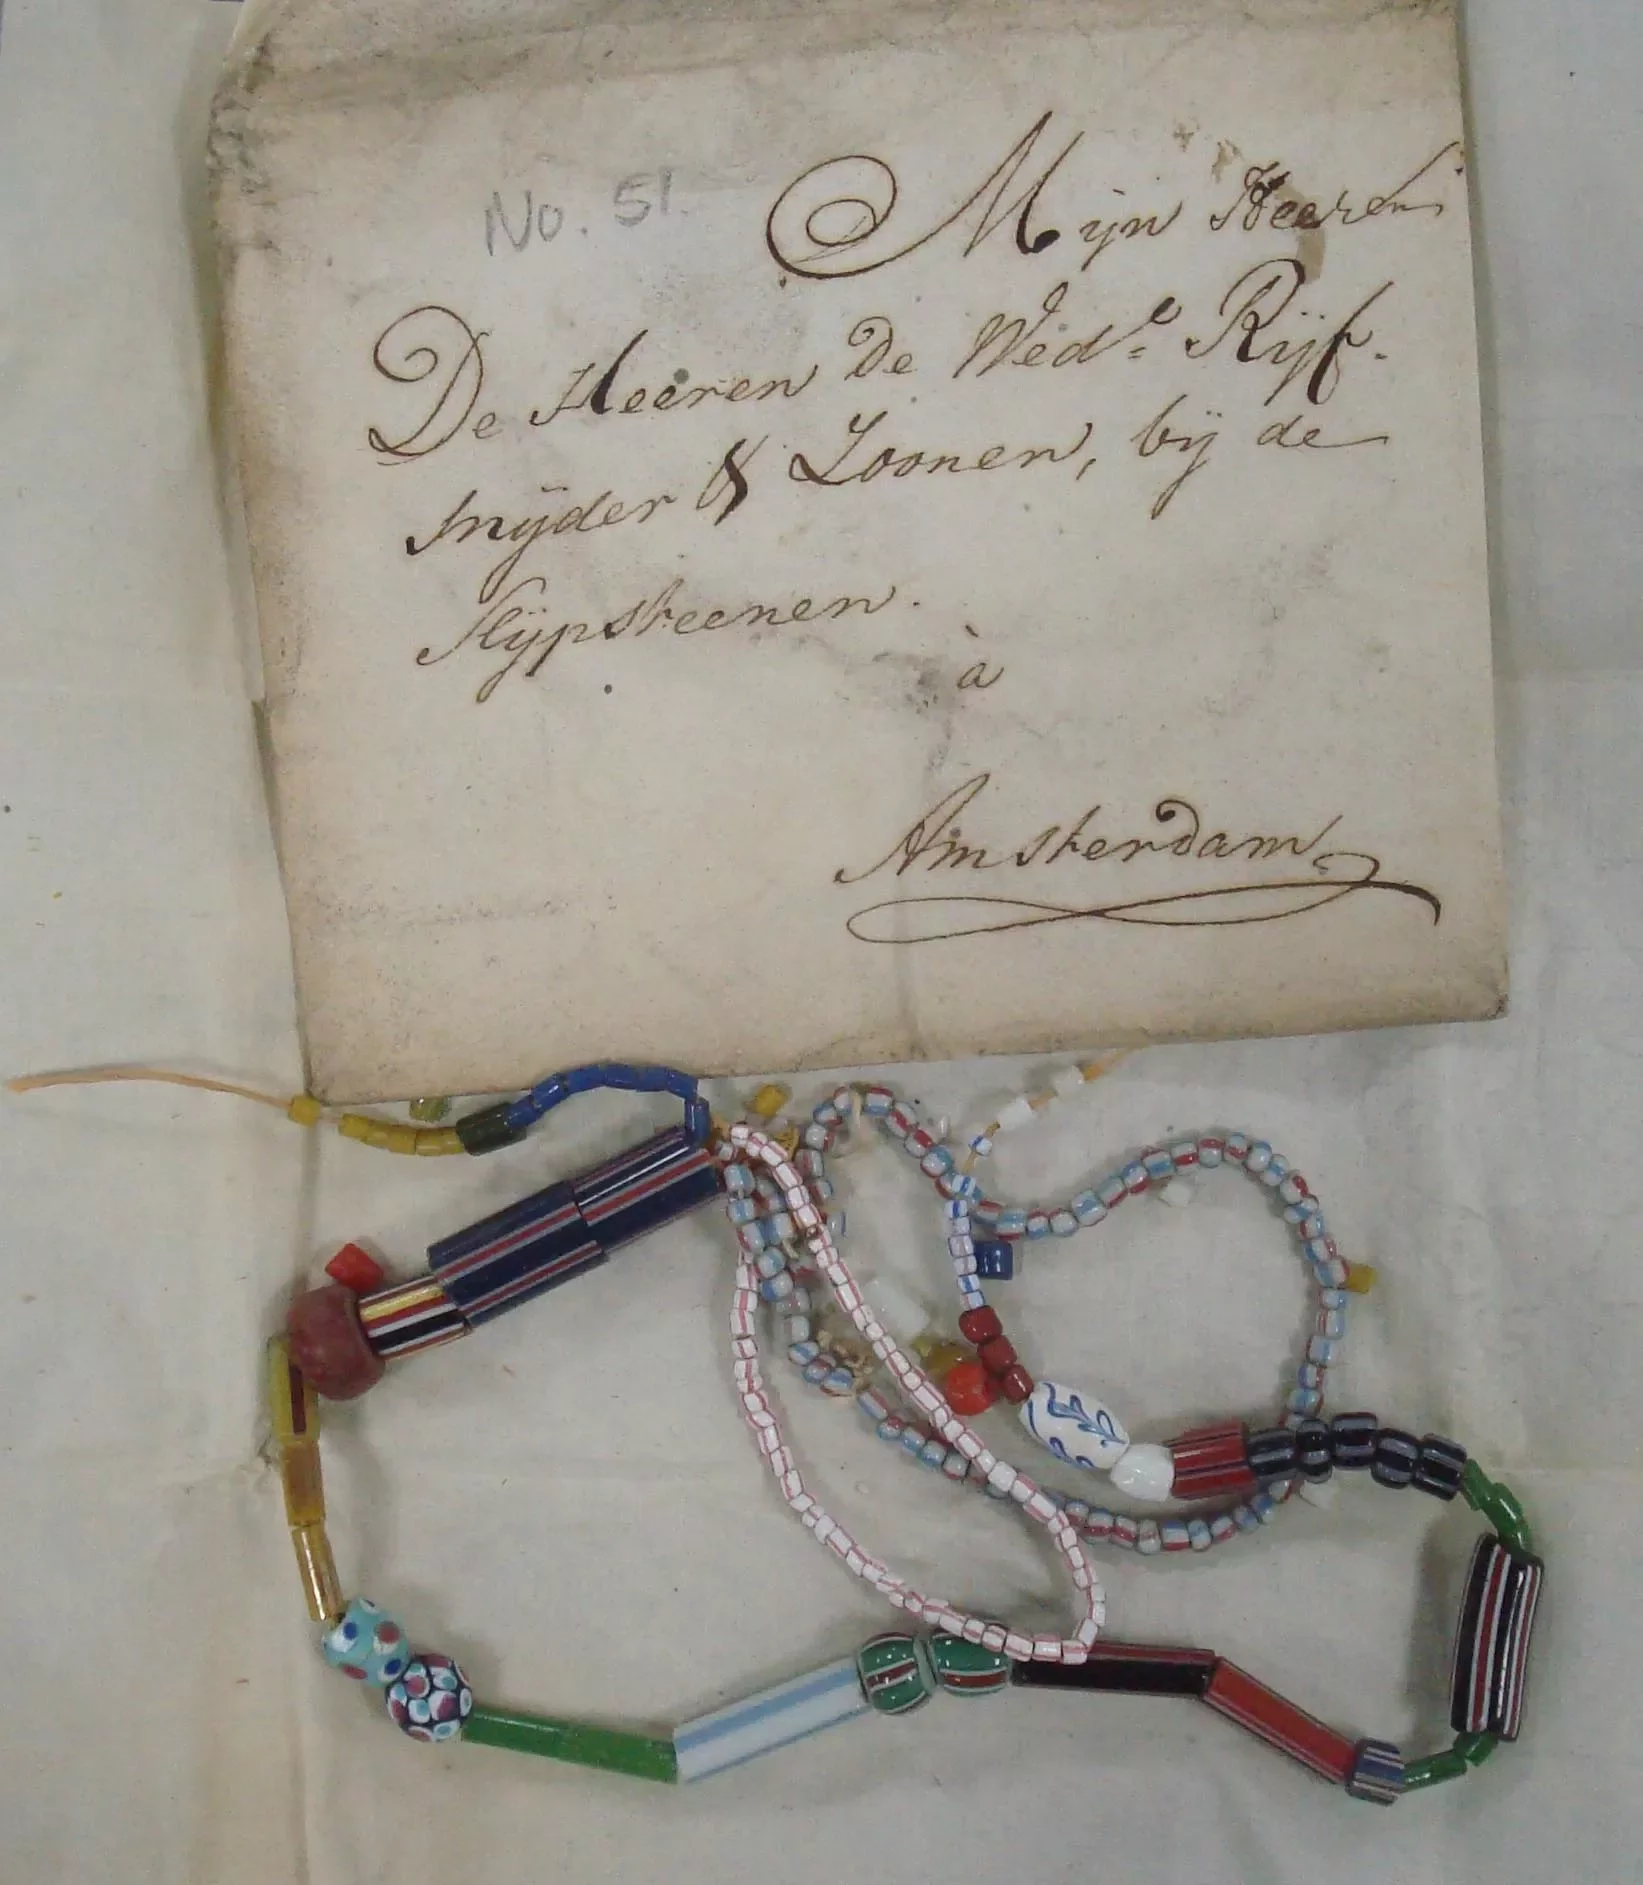 No. 51.
Mijn Heeren
De Heeren De Wed.e Rijf-
snijder & Zoonen, bij de
Slijpsteenen.
à
Amsterdam